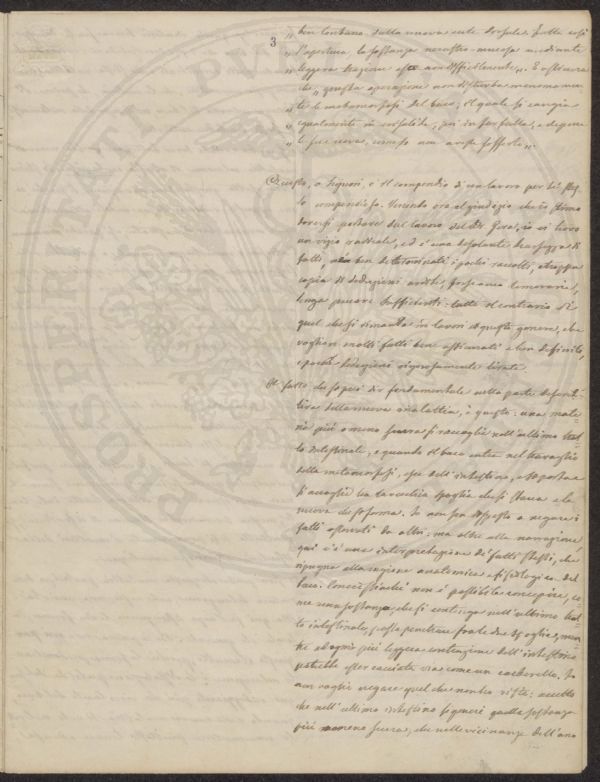 3
„ ben lontana dalla nuova cute dorsale. Fatta così
„ l'apertura la sostanza nerastro-mucosa mediante
„ leggera trazione esce non difficilmente„. E ostinava
che „ questa operazione non disturba menomamen
„ te le metamorfosi del baco; il quale si cangia
„ egualmente in crisalide, poi in farfalla, e depone
„ le sue uova, come se non avesse sofferto„.
Questo, o Signori, è il compendio di un lavoro per sè stes
so compendioso. Venendo ora al giudizio che io stimo
doversi portare sul lavoro del Dr. io vi trovo
un vizio radicale, ed è una desolante scarsezza di
fatti, ben determinati i pochi raccolti, troppa
copia di deduzioni ardite, forse anco temerarie,
senza prove sufficienti: tutto il contrario di
quel che si dimanda in lavori di questo genere, che
vogliono molti fatti bene assicurati e ben definiti,
e poche deduzioni rigorosamente tirate.
Il fatto che saprei dir fondamentale nella parte descrit-
tiva della nuova malattia, è questo: una mate-
ria più o meno scura si raccoglie nell'ultimo trat-
to intestinale, e quando il baco entra nel travaglio
della metamorfosi, esce dell'intestino, e
si accoglie tra la vecchia spoglia che si stacca e la
nuova che si forma. Io non son disposto a negare i
fatti osservati da altri: ma oltre alla narrazione,
qui c'è una interpretazione di fatti stessi, che
ripugna alla ragione anatomica e fisiologica del
baco. Conciossiachè non è possibile concepire, co-
me una sostanza che si contenga nell'ultimo trat-
to intestinale, possa penetrare fra le due spoglie, men-
tre ad ogni più leggera contrazione dell'intestino
potrebbe esser cacciata via come un cacherello. Io
non voglio negare quel che non ho visto: accetto
che nell'ultimo intestino si generi quella sostanza
più o meno scura, che nelle vicinanze dell'ano